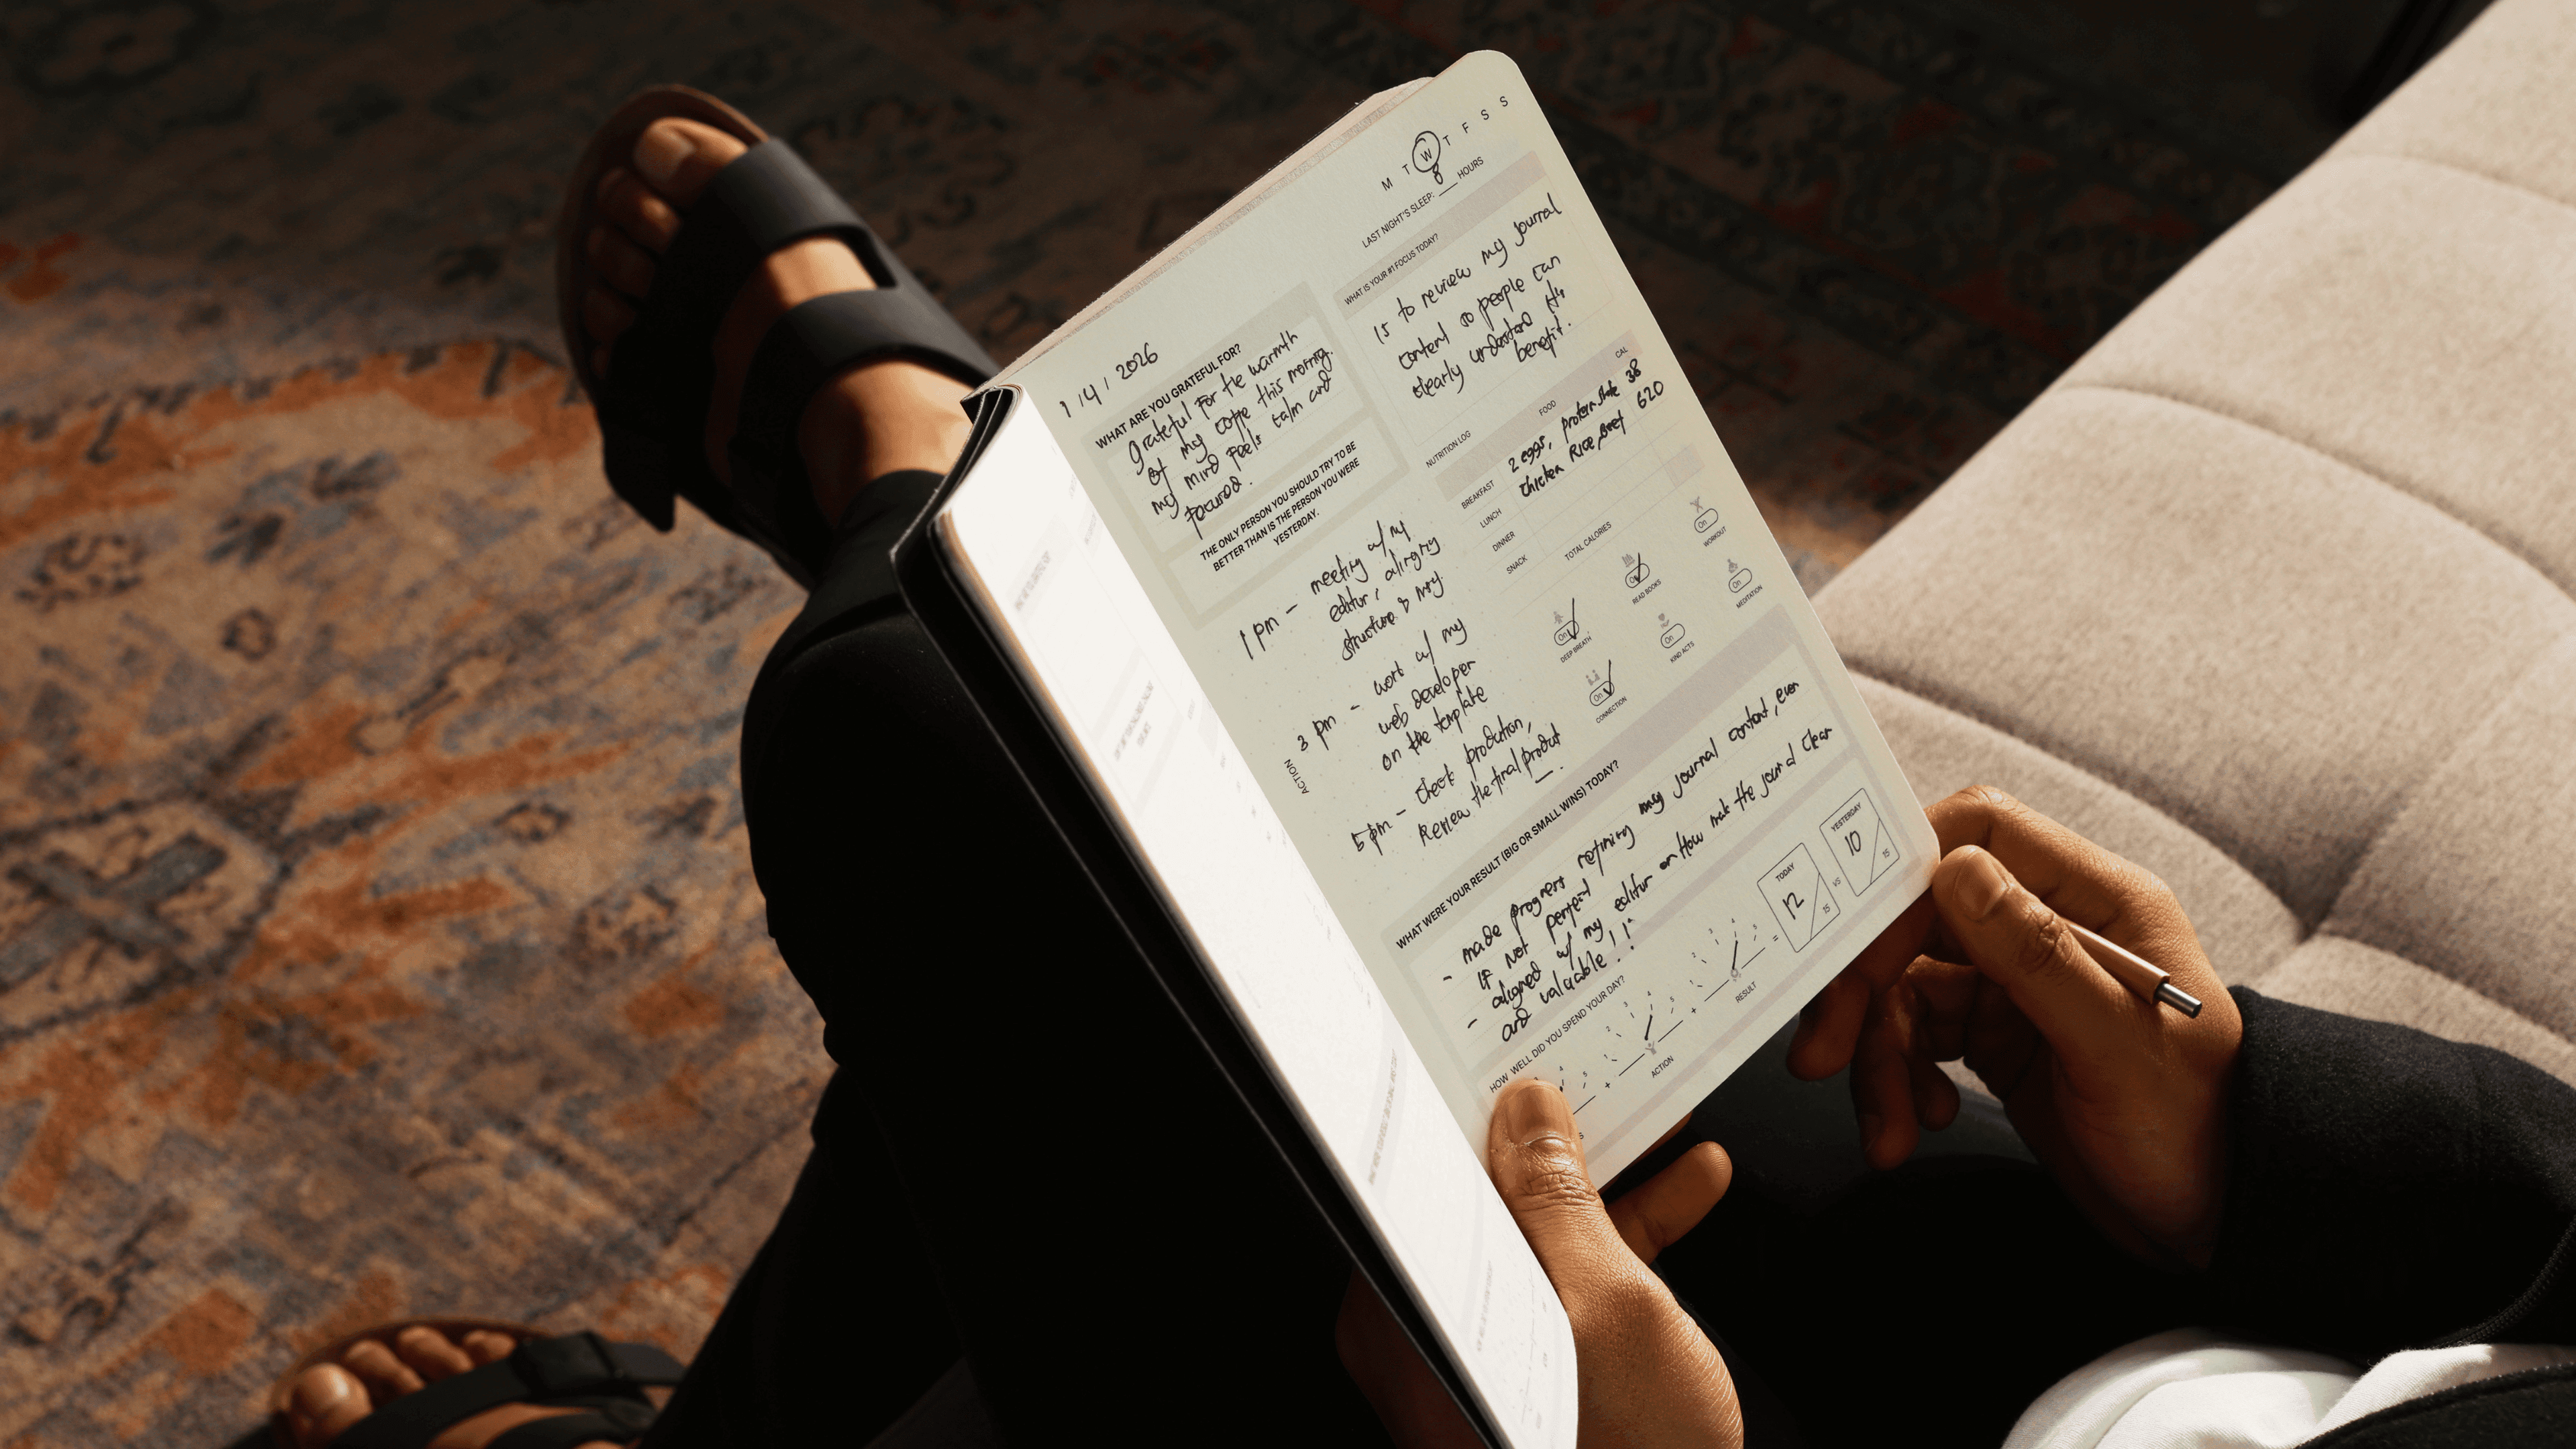 1/4/2026
M T W T F S S
LAST NIGHT'S SLEEP: 8 HOURS
WHAT ARE YOU GRATEFUL FOR?
grateful for the warmth
of my coffe this morning.
my mind feels calm and
focused.
THE ONLY PERSON YOU SHOULD TRY TO BE
BETTER THAN IS THE PERSON YOU WERE
YESTERDAY.
WHAT IS YOUR #1 FOCUS TODAY?
is to review my journal
content so people can
clearly understand its
benefit.
NUTRITION LOG FOOD CAL
BREAKFAST 2 eggs, protein shake 38
LUNCH Chicken Rice, Beef 620
DINNER
SNACK
TOTAL CALORIES
ACTION
1 pm - meeting w/ my
editor, aligning
structure &
3 pm - work w/ my
web developer
on the template
5 pm - check production,
Review the final product
On DEEP BREATH
On READ BOOKS
On WORKOUT
On CONNECTION
On KIND ACTS
On MEDITATION
WHAT WERE YOUR RESULT (BIG OR SMALL WINS) TODAY?
- made progress refining my journal content, even
if not perfect
- aligned w/ my editor on How make the journal clear
and valuable!!
HOW WELL DID YOU SPEND YOUR DAY?
+ ACTION + RESULT =
TODAY 12 15
VS
YESTERDAY 10 15